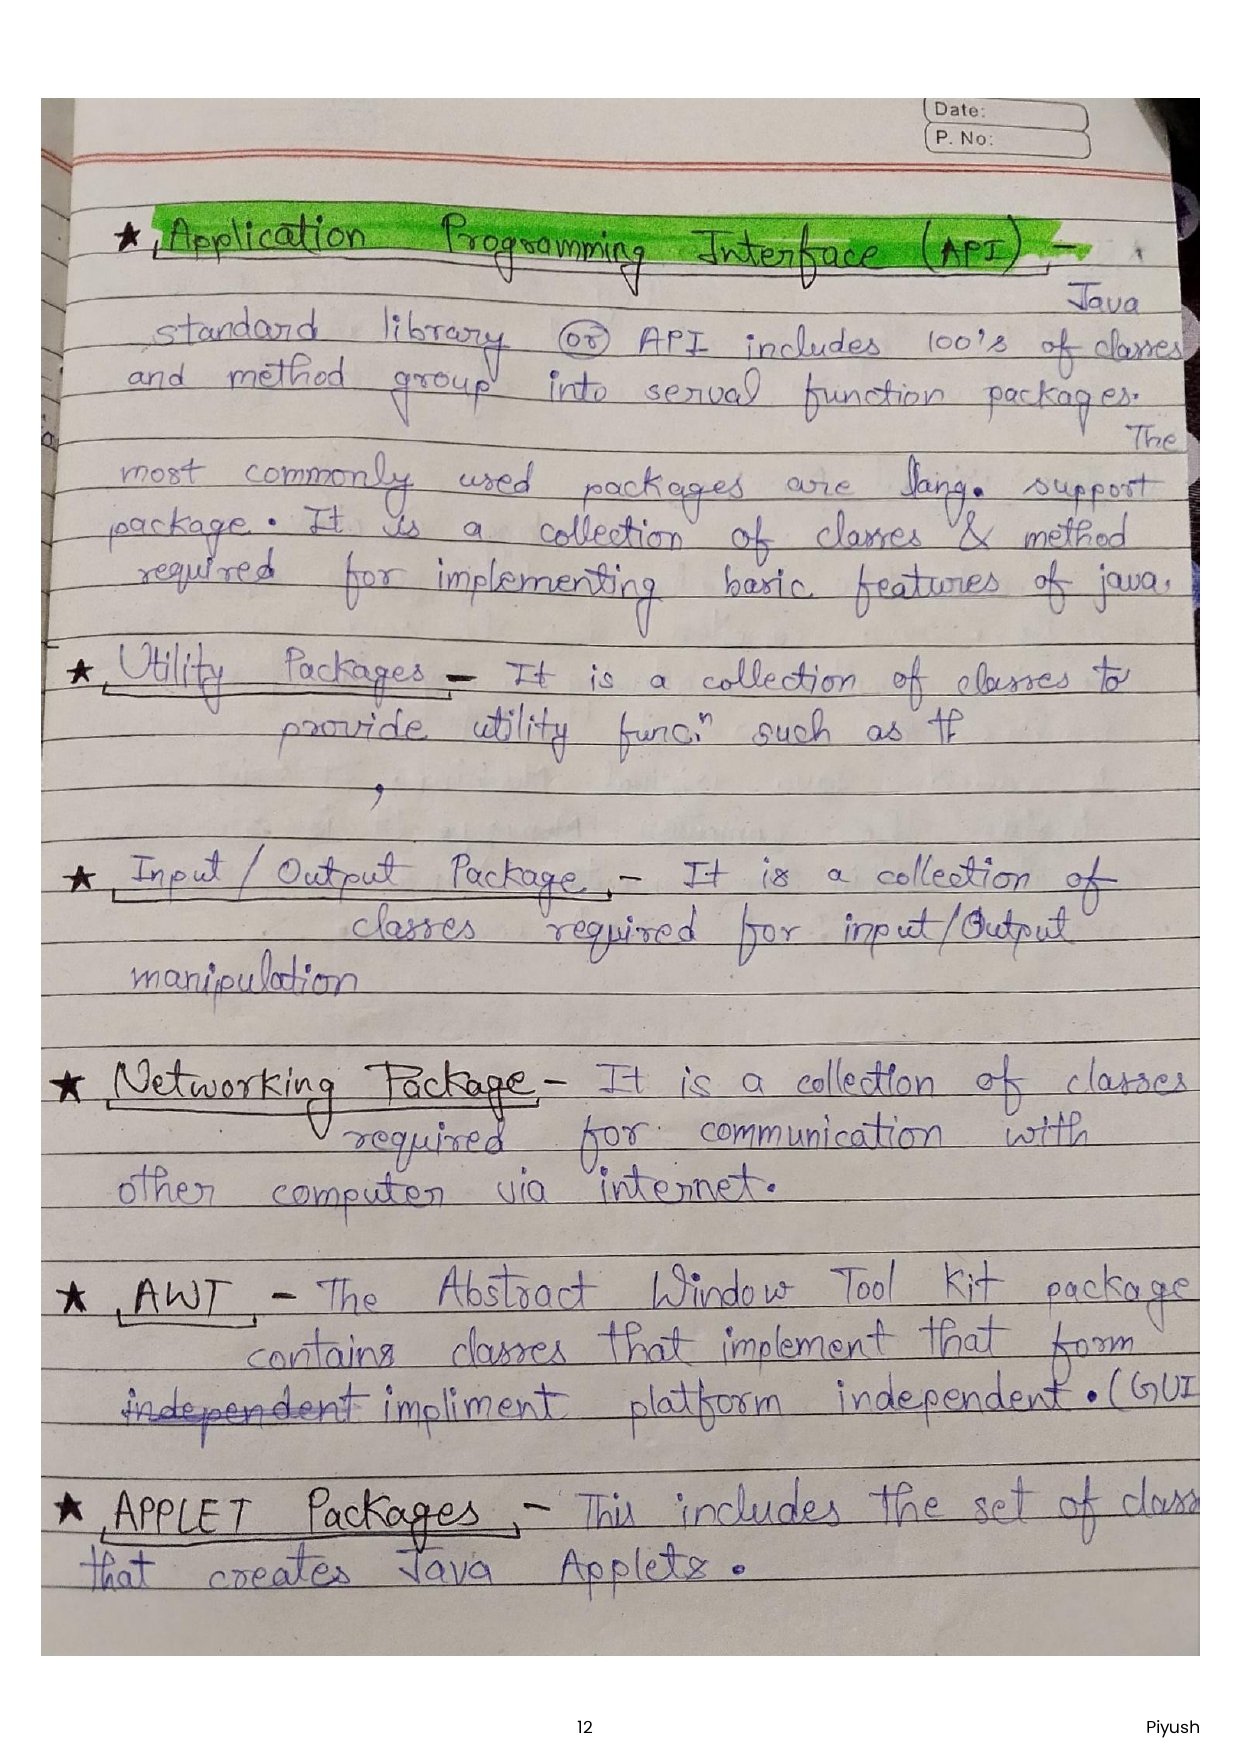 Date:
P. No:
★ Application Programming Interface (API) -
Java
standard library or API includes 100's of classes
and method group into serval function packages.
The
most commonly used packages are lang. support
package. It is a collection of classes & method
required for implementing basic features of java.
★ Utility Packages - It is a collection of classes to
provide utility funcⁿ such as
,
★ Input / Output Package - It is a collection of
classes required for input/Output
manipulation
★ Networking Package - It is a collection of classes
required for communication with
other computer via internet.
★ AWT - The Abstract Window Tool Kit package
contains classes that implement that form
independent impliment platform independent. (GUI
★ APPLET Packages - This includes the set of class
that creates Java Applets.
12
Piyush